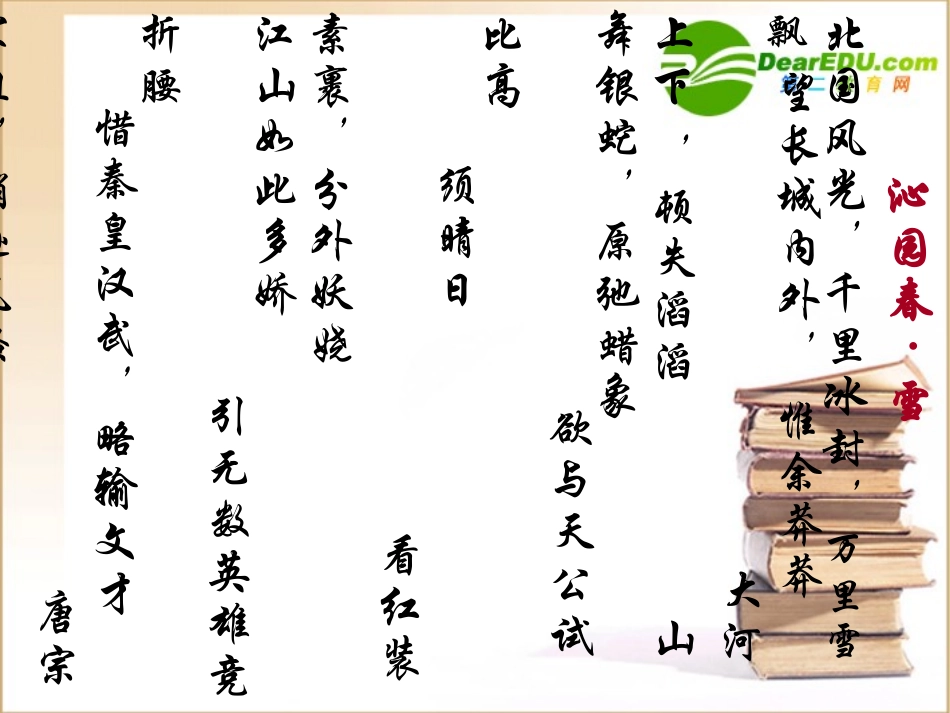 DearEDU.com
第二教育网
沁园春·雪
北国风光，千里冰封，万里雪
飘 望长城内外，惟余莽莽
大河
上下，顿失滔滔 山
舞银蛇，原弛蜡象
欲与天公试
比高
须晴日
看红装
素裹，分外妖娆
江山如此多娇
引无数英雄竞
折腰
惜秦皇汉武，略输文才
唐宗